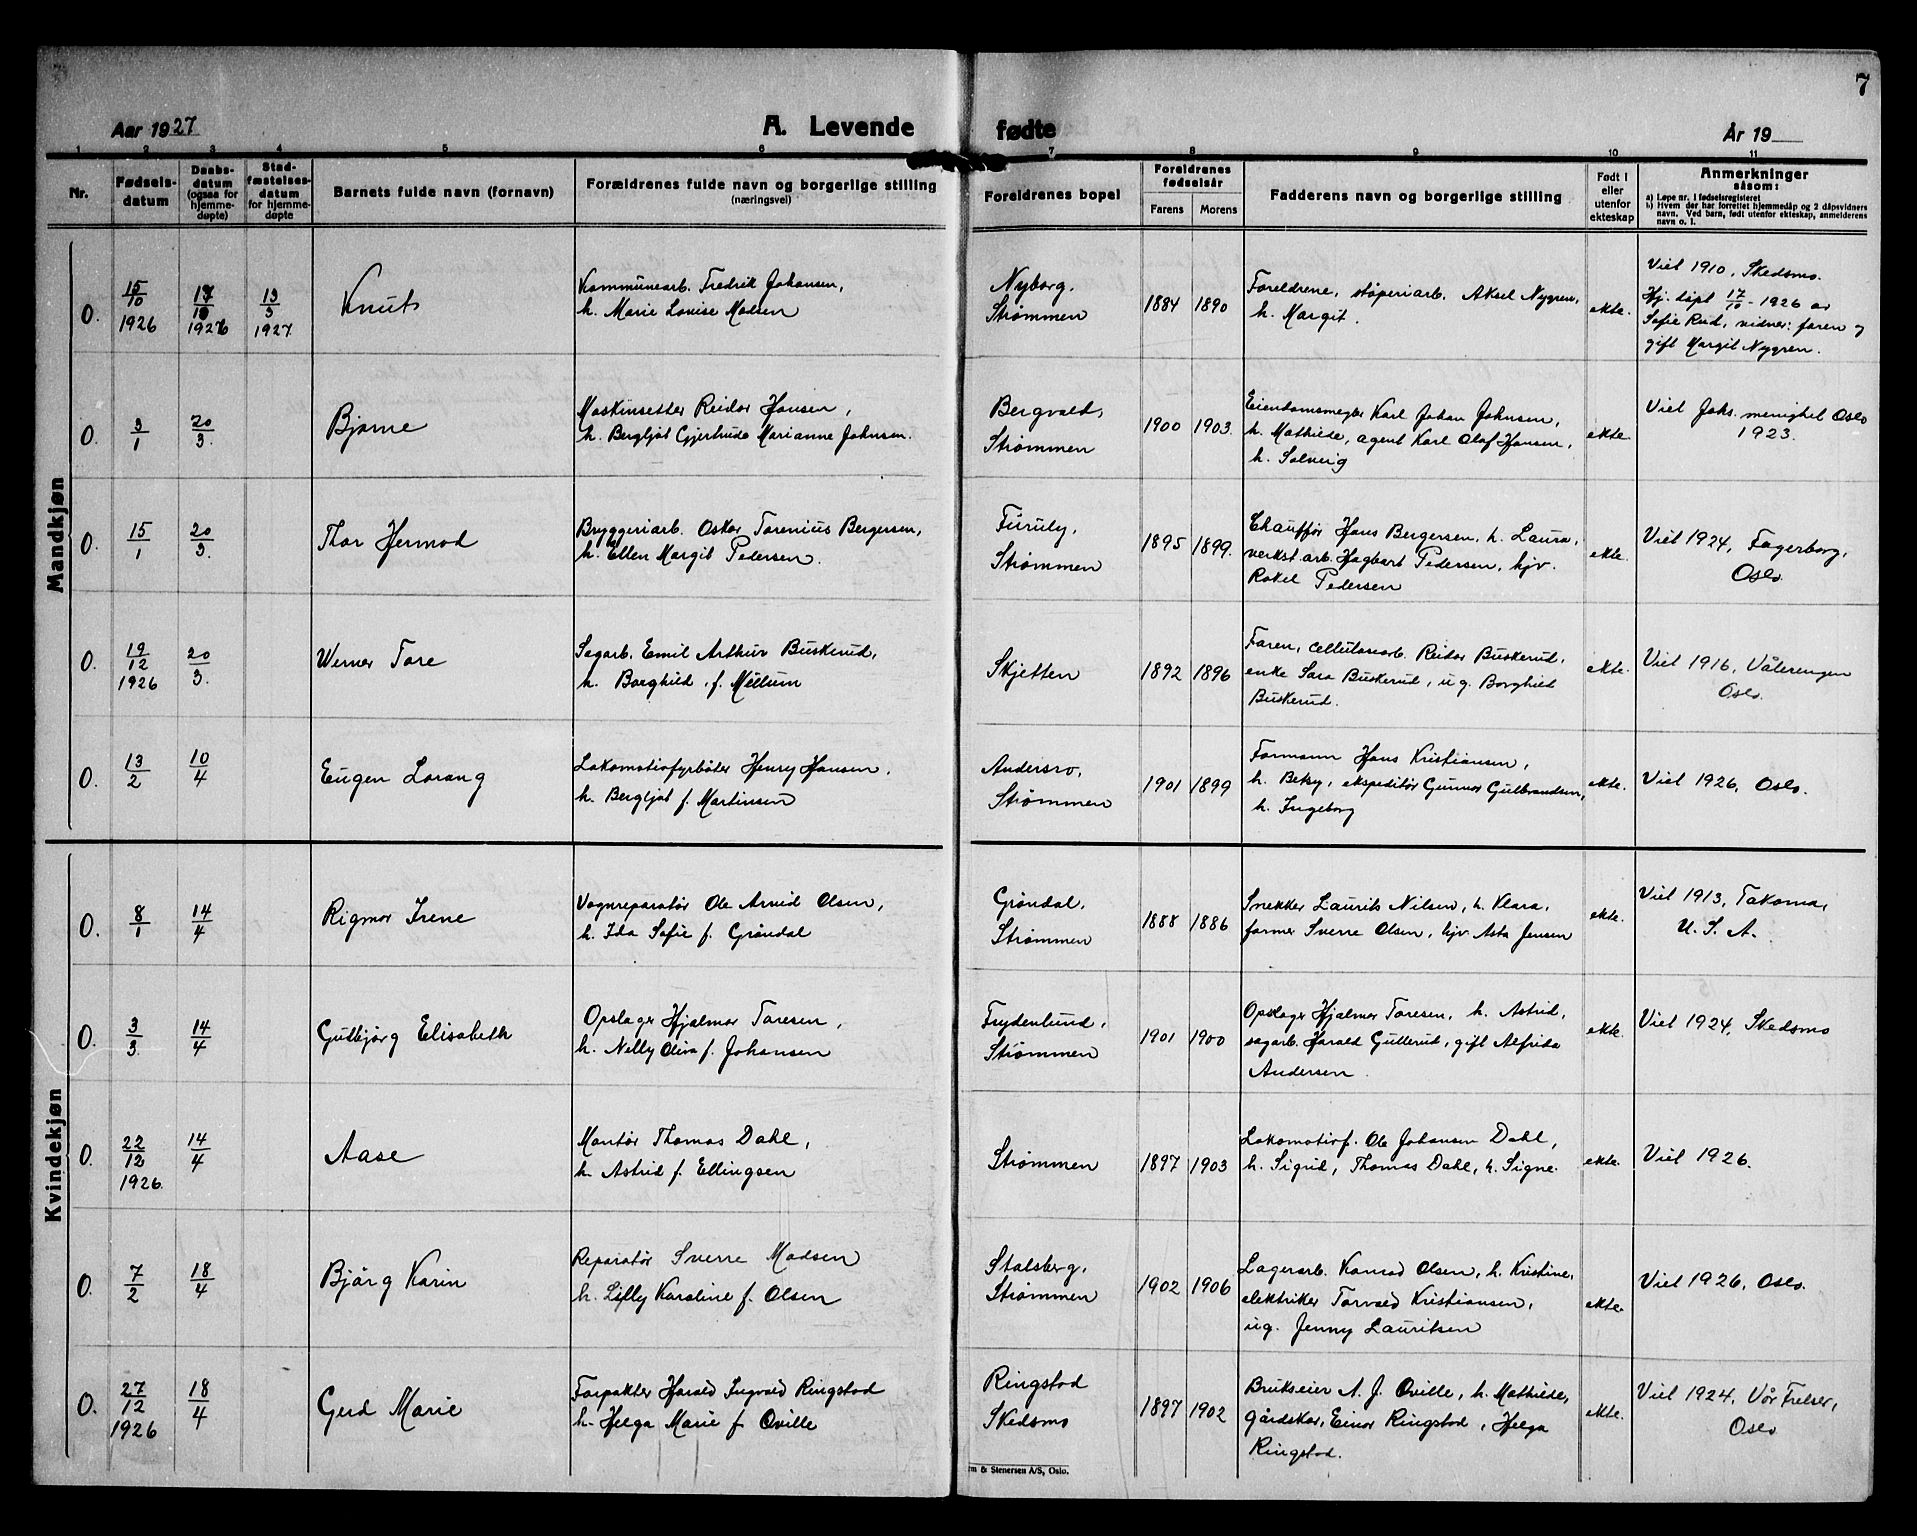 7
Aar 1927
A. Levende
fødte
År 19
1 2 3 4 5 6 7 8 9 10 11
Nr.
Fødsels-
datum
Daabs-
datum
(ogsaa for
hjemme-
døpte)
Stad-
fæstelses-
datum
for hjemme-
døpte
Barnets fulde navn (fornavn)
Forældrenes fulde navn og borgerlige stilling
(næringsvei)
Foreldrenes bopel
Foreldrenes
fødselsår
Farens Morens
Fadderens navn og borgerlige stilling
Født i
eller
utenfor
ekteskap
Anmerkninger
såsom:
a) Løpe nr. i fødselsregisteret
b) Hvem der har forrettet hjemmedåp og 2 dåpsvidners
navn. Ved barn, født utenfor ekteskap, anmelderens
navn o. l.
Mandkjøn
0.
15/10
1926
17/10
1926
13/3
1927
Knut
Kommunearb. Fredrik Johansen,
h. Marie Lovise Madsen
Nyborg,
Strømmen
1884 1890
Foreldrene, støperiarb. Aksel Nygren,
h. Margit.
ekte.
Viet 1910, Skedsmo.
Hj. døpt 17/10 - 1926 av
Sofie Rud, vidner: faren og
gift Margit Nygren.
0.
3/1
20/3.
Bjarne
Maskinsetter Reidar Hansen,
h. Bergljot Gjertrude Marianne Johnsen.
Bergvald,
Strømmen
1900 1903.
Eiendomsmegler Karl Johan Johnsen,
h. Mathilde, agent Karl Olaf Hansen,
h. Solveig
ekte.
Viet Joh's. menighet Oslo
1923.
0.
15/1
20/3.
Thor Hermod
Bryggeriarb. Oskar Torenius Bergersen,
h. Ellen Margit Pedersen.
Furuly,
Strømmen
1895 1899.
Chauffør Hans Bergersen, h. Laura,
verkst.arb. Hagbart Pedersen, hjv.
Rakel Pedersen
ekte.
Viet 1924, Fagerborg,
Oslo
0.
19/12
1926
20/3.
Werner Tore
Sagarb. Emil Arthur Buskerud,
h. Borghild f. Mellum
Skjetten
1892 1896
Faren, cellulosearb. Reidar Buskerud,
enke Sara Buskerud, ug. Borghild
Buskerud.
ekte.
Viet 1916, Vålerengen
Oslo.
0.
13/2
10/4
Eugen Lorang
Lokomotivfyrbøter Henry Hansen,
h. Bergljot f. Martinsen
Andersro,
Strømmen
1901 1899
Formann Hans Kristiansen,
h. Betsy, ekspeditør Gunnar Gulbrandsen,
h. Ingeborg
ekte.
Viet 1926, Oslo.
Kvindekjøn
0.
8/1
14/4
Rigmor Irene
Vognreparatør Ole Arvid Olsen,
h. Ida Sofie f. Grøndal
Grøndal,
Strømmen
1888 1886
Snekker Laurits Nilsen, h. Klara,
former Sverre Olsen, hjv. Asta Jensen
ekte.
Viet 1913, Takoma,
U. S. A.
0.
3/3
14/4
Gudbjørg Elisabeth
Opslager Hjalmar Toresen,
h. Nelly Oliva f. Johansen
Frydenlund,
Strømmen
1901 1900
Opslager Hjalmar Toresen, h. Astrid,
sagarb. Harald Gullerud, gift Alfrida
Andersen
ekte.
Viet 1924, Skedsmo
0.
22/12
1926.
14/4
Aase
Montør Thomas Dahl,
h. Astrid f. Ellingsen
Strømmen
1897 1903
Lokomotivf. Ole Johansen Dahl,
h. Sigrid, Thomas Dahl, h. Signe.
ekte.
Viet 1926.
0.
7/2
18/4
Bjørg Karin
Reparatør Sverre Madsen
h. Lilly Karoline f. Olsen
Stalsberg,
Strømmen
1902 1906
Lagerarb. Konrad Olsen, h. Kristine,
elektriker Torvald Kristiansen,
ug. Jenny Lauritsen
ekte.
Viet 1926, Oslo.
0.
27/12
1926
18/4
Gerd Marie
Forpakter Harald Ingvald Ringstad
h. Helga Marie f. Oville
Ringstad
Skedsmo
1897 1902
Brukseier A. J. Oville, h. Mathilde,
gårdskar, Einar Ringstad, Helga
Ringstad.
ekte.
Viet 1924, Vår Frelser,
Oslo
& Stenersen A/S, Oslo.